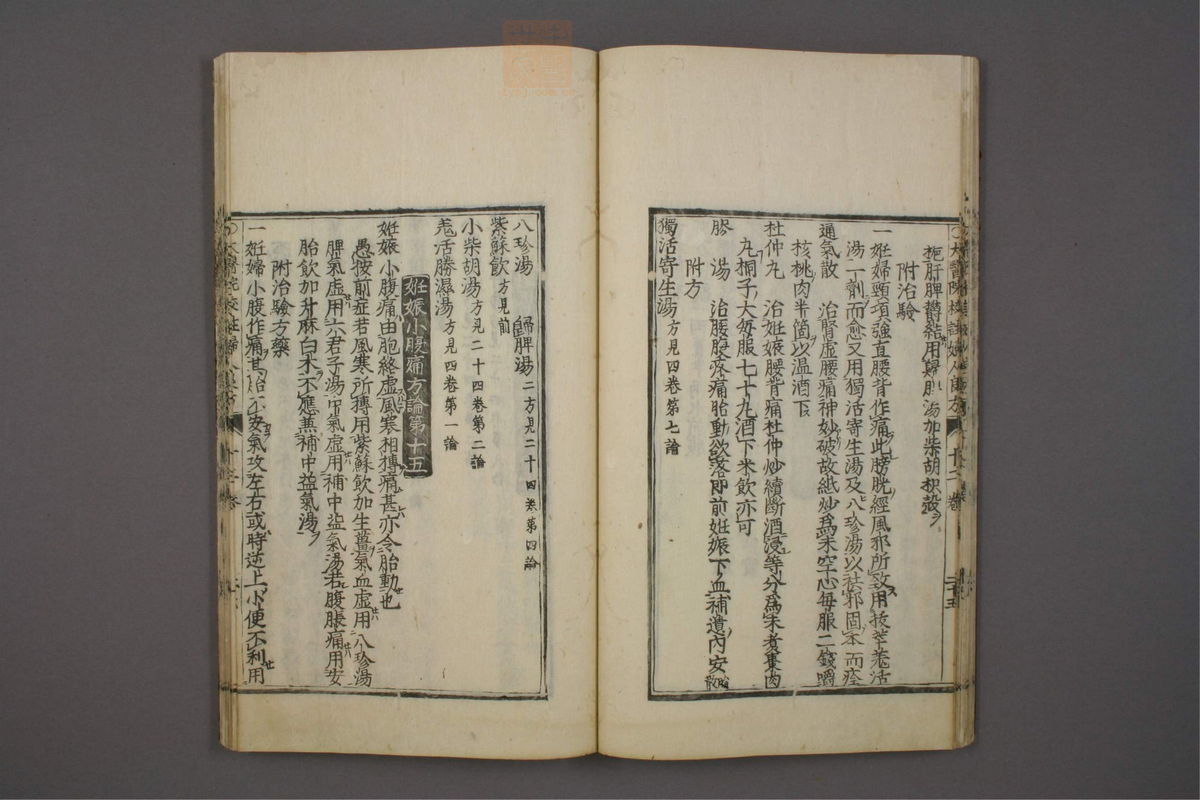 扼肝脾鬱結用歸脾湯加柴胡枳殼
附治驗
一妊婦頸項強直腰背作痛此膀胱經風邪所致用拔萃羗活
湯一劑而愈又用獨活寄生湯及八珍湯以祛邪固本而痊
通氣散　治腎虛腰痛神妙破故紙炒爲末空心每服二錢嚼
核桃肉半箇以温酒下
杜仲丸　治妊娠腰背痛杜仲炒續斷酒浸等分爲末煑棗肉
丸桐子大每服七十丸酒下米飲亦可
湯　治腰腹疼痛胎動欲落即前妊娠下血補遺內安胎散
附方
獨活寄生湯方見四卷第七論
八珍湯　歸脾湯二方見二十四卷第四論
紫蘇飲方見前
小柴胡湯方見二十四卷第二論
羗活勝濕湯方見四卷第一論
妊娠小腹痛方論第十五
妊娠小腹痛由胞絡虛風寒相搏痛甚亦令胎動也
愚按前症若風寒所搏用紫蘇飲加生薑氣血虛用八珍湯
脾氣虛用六君子湯中氣虛用補中益氣湯若腹脹痛用安
胎飲加升麻白术不應兼補中益氣湯
附治驗方藥
一妊婦小腹作痛其胎不安氣攻左右或時逆上小便不利用